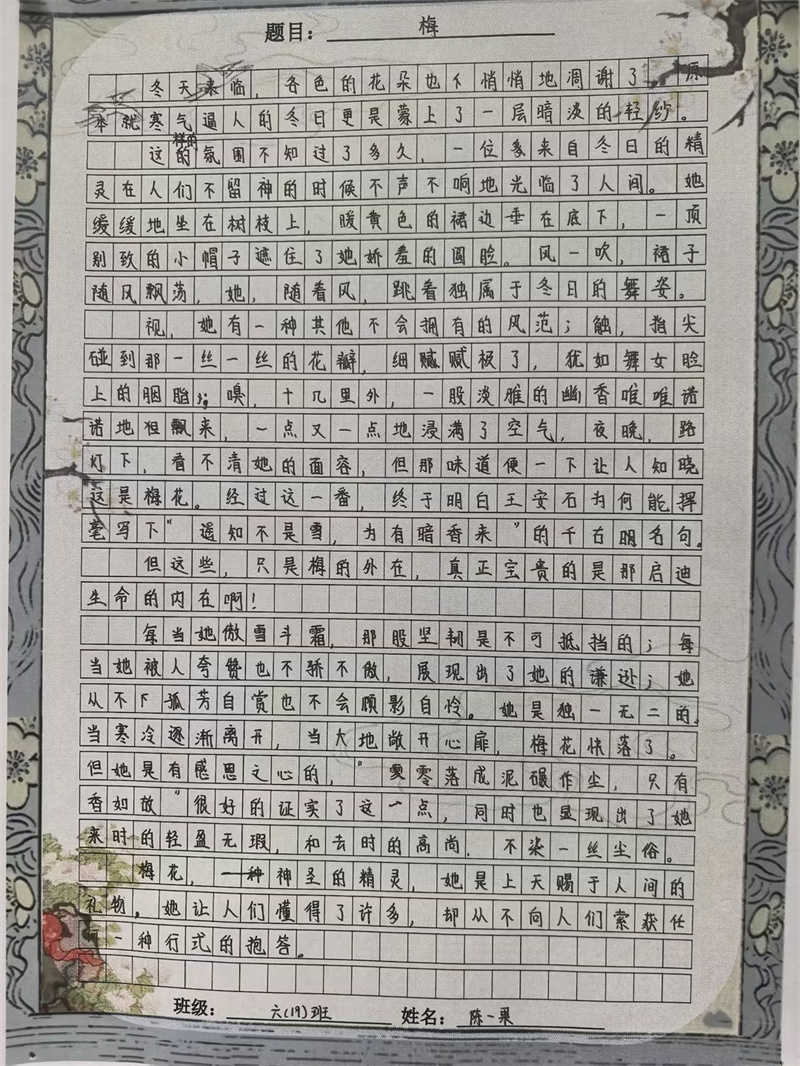 题目：梅
冬天来临，各色的花朵也悄悄地凋谢了。原
本就寒气逼人的冬日更是蒙上了一层暗淡的轻纱。
这样的氛围不知过了多久，一位多来自冬日的精
灵在人们不留神的时候不声不响地光临了人间。她
缓缓地坐在树枝上，暖黄色的裙边垂在底下，一顶
别致的小帽子遮住了她娇羞的圆脸。风一吹，裙子
随风飘荡，她，随着风，跳着独属于冬日的舞姿。
视，她有一种其他不会拥有的风范；触，指尖
碰到那一丝一丝的花瓣，细腻极了，犹如舞女脸
上的胭脂；嗅，十几里外，一股淡雅的幽香唯唯诺
诺地飘来，一点又一点地浸满了空气，夜晚，路
灯下，看不清她的面容，但那味道便一下让人知晓
这是梅花。经过这一番，终于明白王安石为何能挥
毫写下“遥知不是雪，为有暗香来”的千古明名句。
但这些，只是梅的外在，真正宝贵的是那启迪
生命的内在啊！
每当她傲雪斗霜，那股坚韧是不可抵挡的；每
当她被人夸赞也不骄不傲，展现出了她的谦逊；她
从不孤芳自赏也不会顾影自怜。她是独一无二的。
当寒冷逐渐离开，当大地敞开心扉，梅花快落了。
但她是有感恩之心的，“零落成泥碾作尘，只有
香如故”很好的证实了这一点，同时也显现出了她
来时的轻盈无瑕，和去时的高尚，不染一丝尘俗。
梅花，一种神圣的精灵，她是上天赐于人间的
礼物。她让人们懂得了许多，却从不向人们索获任
何一种行式的抱答。
班级：六（19）班 姓名：陈一果